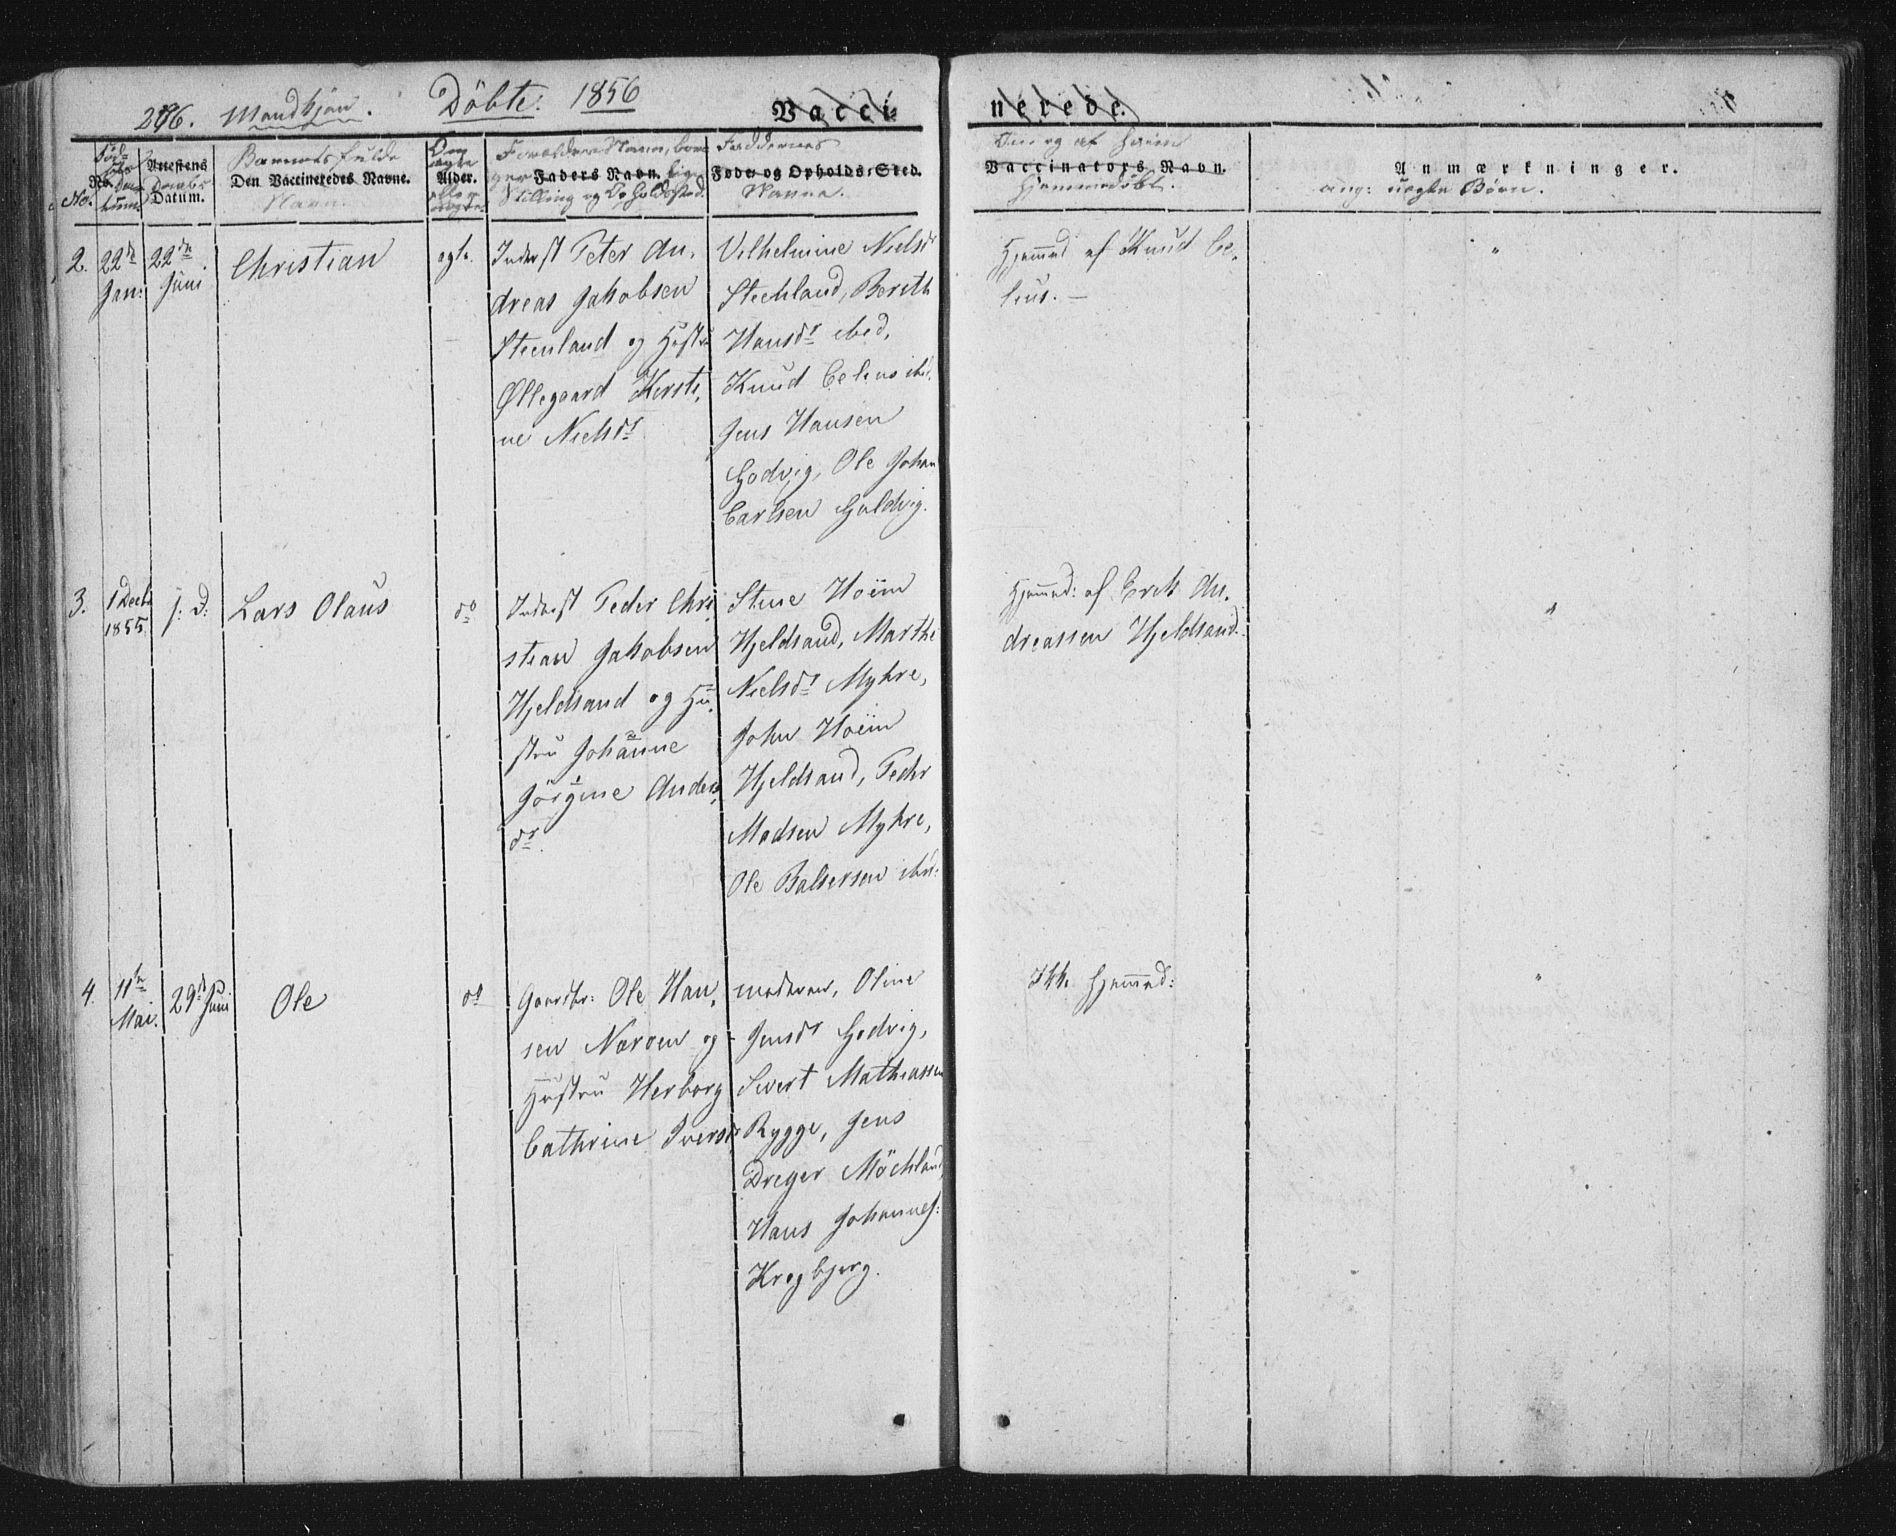 296. Mandkjøn. Döbte. 1856 Vacci- nerede.
No. Födselsdatum No. Attestens Daabs Datum. Barnets fulde Den Vaccineredes Navne. Navn. Om ægte Alder. eller uægte. Forældres Navn, borgerlige Faders Navn. Stilling og Opholdssted. Faddernes Føde og Opholds-Sted. Navne. Om og af hvem Vaccinators Navn. Hjemmedöbt. Anmærkninger. ang: uægte Børn.
2. 22de Jan: 22de Juni. Christian ægte.
Inderst Peter An-
dreas Jakobsen
Steenland og Hustru
Øllegaard Kirsti-
ne Nielsdr
Vilhelmine Nielsdr
Stechland, Berith
Hansdr ibed,
Knud Celius ibd.
Jens Hansen
Godvig, Ole Johan
Carlsen Guldvig.
Hjemmed af Knud Ce-
lius. —
"
3. 1 Decbr 1855. j: D: Lars Olaus do
Inderst Peder Chri-
stian Jakobsen
Hjeldsand og Hu-
stru Johanne
Jörgine Anders-
dr.
Stine Hoëm
Hjeldsand, Marthe
Nielsdr Myhre,
John Hoëm
Hjeldsand, Peder
Madsen Myhre,
Ole Baltsersen ibd:
Hjemmed: af Erik An-
dreassen Hjeldsand.
"
4. 11te Mai. 29de Juni Ole do
Gaardbr: Ole Han-
sen Noroen og
Hustru Herborg
Cathrine Iversdr
moderen, Oline
Jensdr Godvig,
Sivert Mathiassen
Rygge, Jens
Dreyer Möchland,
Hans Johannes:
Krogbjerg.
Ikke hjemmed:
"